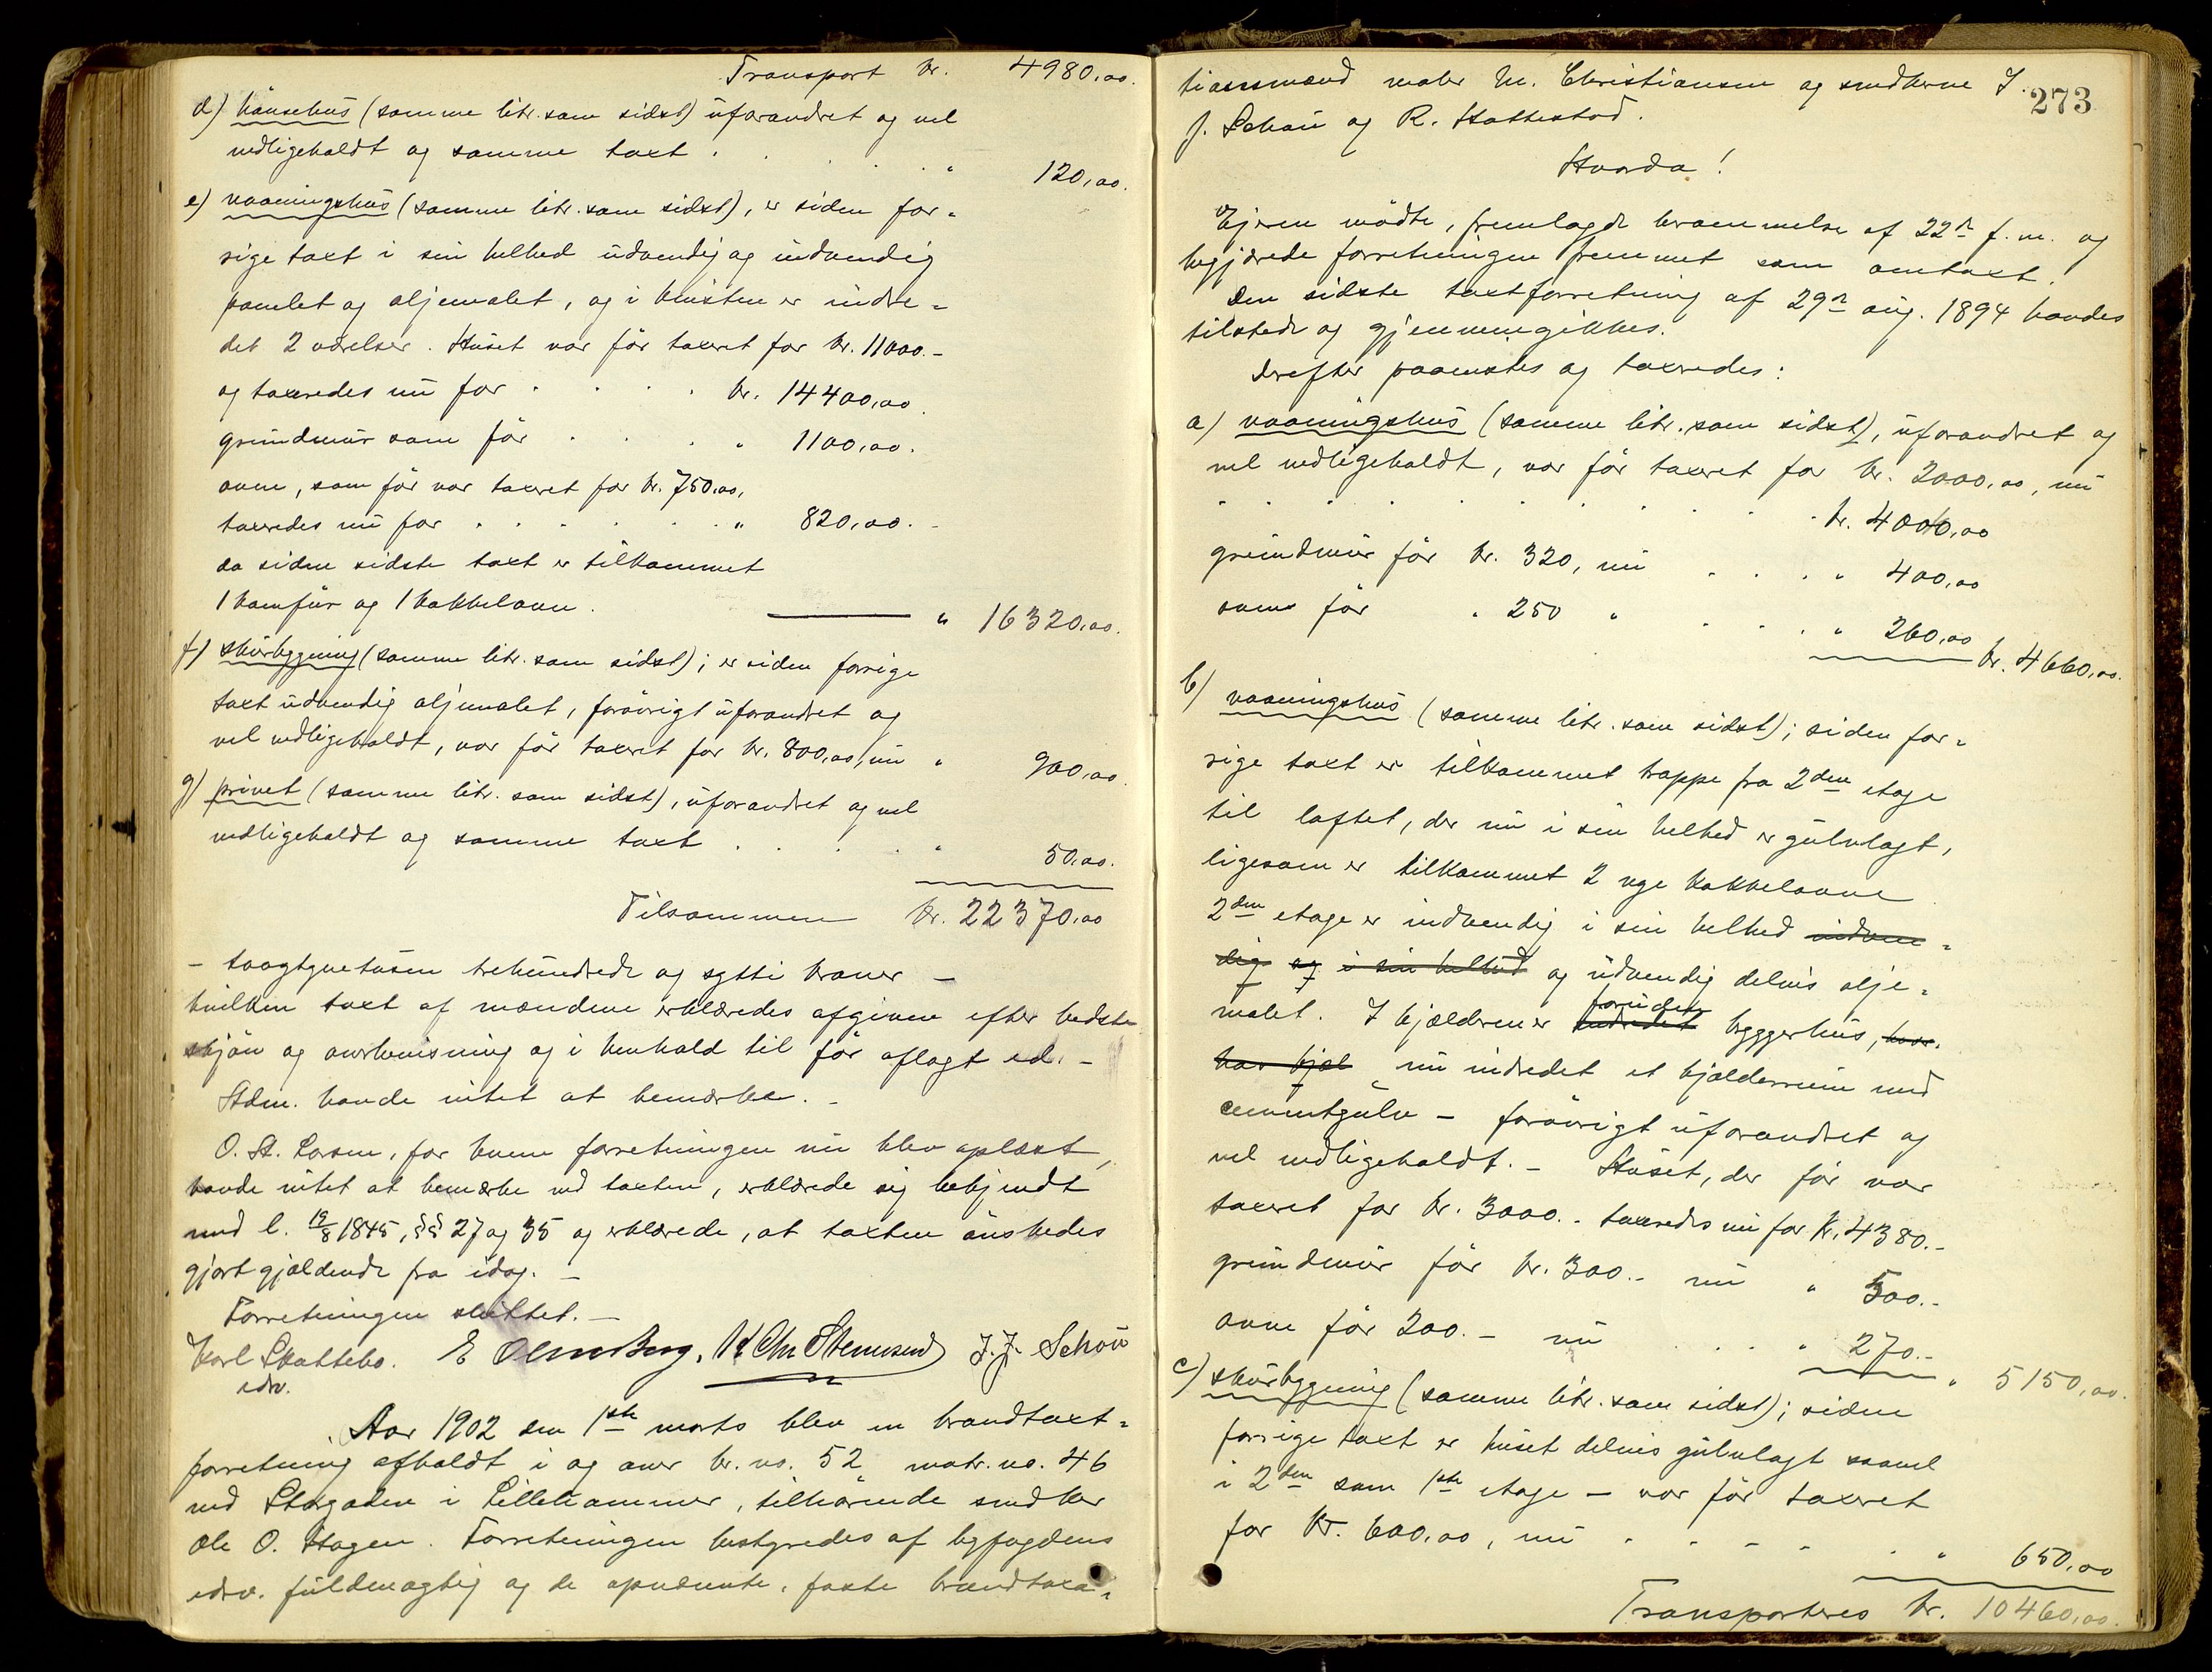 Transport kr. 4980,00.
d) hönsehus (samme litr. som sidst) uforandret og vel
vedligeholdt og samme taxt . . . . " 120,00.
e) vaaningshus (samme litr. som sidst), er siden for-
rige taxt i sin helhed udvendig og indvendig
panelet og oljemalet, og i kvisten er indre-
det 2 værelser. Huset var før taxeret for kr. 11000.-
og taxeredes nu for . . . . kr. 14400,00.
grundmur som før . . . . " 1100,00.
ovne, som før var taxeret for kr. 750,00,
taxeredes nu for . . . . . . " 820,00.-
da siden sidste taxt er tilkommet
1 komfur og 1 kakkelovn. " 16320,00.
f) skurbygning (samme litr. som sidst); er siden forrige
taxt udvendig oljemalet, forøvrigt uforandret og
vel vedligeholdt, var før taxeret for kr. 800,00, nu " 900,00.
g) privet (samme litr. som sidst), uforandret og vel
vedligeholdt og samme taxt . . . . " 50,00.
Tilsammen kr. 22370,00
- toogtyvetusen trehundrede og sytti kroner -
hvilken taxt af mændene erklæredes afgiven efter bedste
skjön og overbevisning og i henhold til før aflagt ed. -
Adm. havde intet at bemærke. -
O. A. Larsen, for hvem forretningen nu blev oplæst,
havde intet at bemærke ved taxten, erklærede sig bekjendt
med l. 19/8 1845, §§ 27 og 35 og erklærede, at taxten ønskedes
gjort gjældende fra idag. -
Forretningen sluttet. -
Karl Skattebo. E Olmsberg. K Chr Stenersen J. J. Schou
edsv.
Aar 1902 den 1ste marts blev en brandtaxt-
forretning afholdt i og over br. no. 52 matr. no. 46
ved Storgaden i Lillehammer, tilhørende snedker
Ole O. Hagen. Forretningen bestyredes af byfogdens
edsv. fuldmægtig og de opnævnte, faste brandtaxa-
273
tionsmænd maler M. Christiansen og snedkerne J.
J. Schou og R. Hattestad.
Hvorda!
Ejeren mødte, fremlagde berammelse af 22n f. m. og
begjærede forretningen fremmet som omtaxt.
Den sidste taxtforretning af 29n aug. 1894 havdes
tilstede og gjennemgikkes.
Derefter paavistes og taxeredes:
a) vaaningshus (samme litr. som sidst), uforandret og
vel vedligeholdt, var før taxeret for kr. 2000,00, nu
. . . . . . . . kr. 4000,00
grundmur før kr. 320, nu . . . . " 400,00
ovne før " 250 " . . . . " 260,00 kr. 4660,00.
b) vaaningshus (samme litr. som sidst); siden for-
rige taxt er tilkommet trappe fra 2den etage
til loftet, der nu i sin helhed er gulvlagt,
ligesom er tilkommet 2 nye kakkelovne.
2den etage er indvendig i sin helhed indven-
dig og i sin helhed og udvendig delvis olje-
malet. I kjælderen er indredet foruden bryggerhus, hvor.
har kjæl nu indredet et kjælderrum med
cementgulv - forøvrigt uforandret og
vel vedligeholdt. - Huset, der før var
taxeret for kr. 3000.- taxeredes nu for kr. 4380.-
grundmur før kr. 300.- nu " 500.-
ovne før 200.- nu . . . " 270.- " 5150,00.
c) skurbygning (samme litr. som sidst); siden
forrige taxt er huset delvis gulvlagt saavel
i 2den som 1ste etage - var før taxeret
for kr. 600,00, nu . . . . . " 650,00
Transporteres kr. 10460,00.